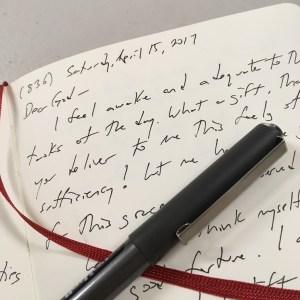 (836) Saturday, April 15, 2017
Dear God—
I feel awake and adequate to the
tasks of the day. What a gift, tha
you deliver to me this feeling of
sufficiency! Let me
for this grace think myself
good fortune. I a